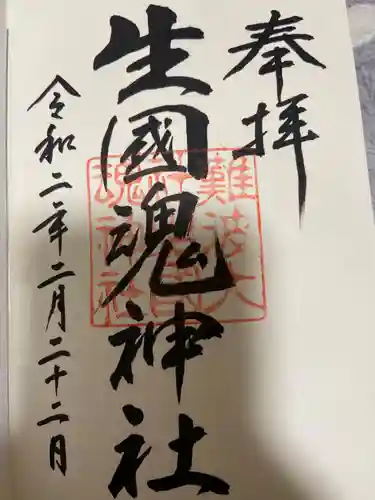 奉拝
生國魂神社
令和二年二月二十二日
難波大
魂神社